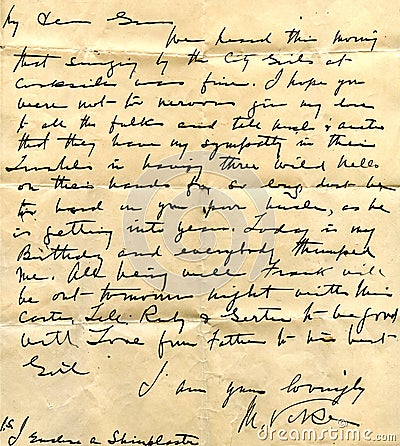 My Dear Girl
We heard this morning
that singing by the City Girls at
was fine. I hope you
were not to nervous give my love
to all the folks and tell Uncle & Auntie
that they have my sympathy in their
troubles in having three wild
on their hands for so long, dont be
to hard on your poor Uncle, as he
is getting into years. Today is my
Birthday and everybody thumped
me. All being well Frank will
be out tomorrow night with his
Tell Ruby & Gertie to be good
with Love from Father to his best
Girl
I am yours lovingly
M.
P.S. I Enclose a Shinplaster
dreamstime